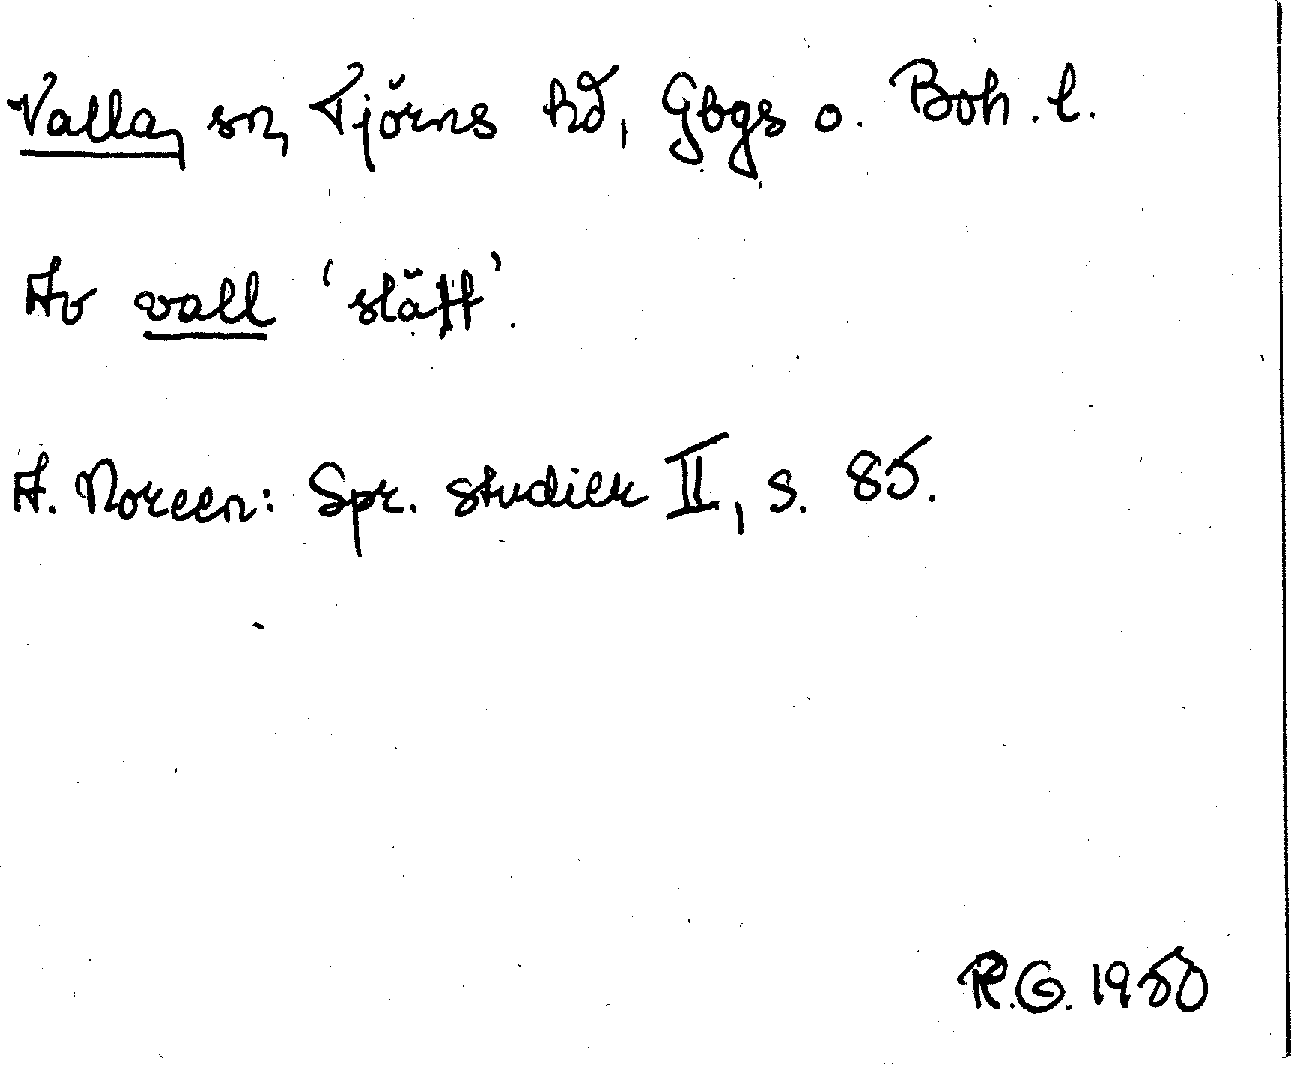 Valla, sn, Tjörns hd, Gbgs o. Boh. l.
Av vall 'slätt'.
A. Noreen: Spr. studier II, s. 85.
R.G. 1950